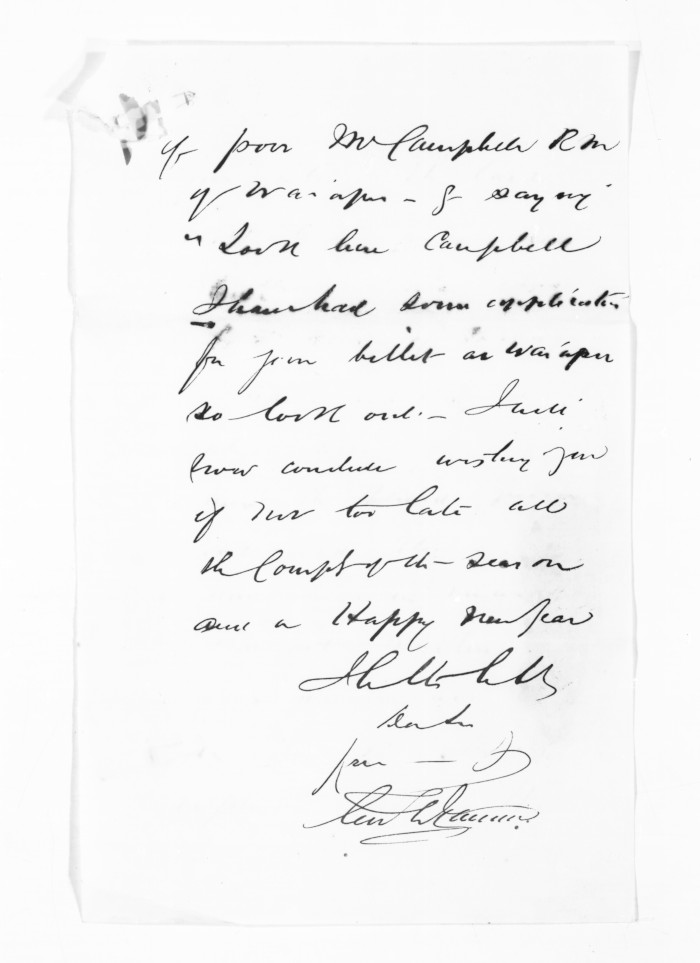 of poor Mr Campbell R M
of Waiapu - & saying
"Look here Campbell
I have had some applications
for your billet at Waiapu
so look out. - I will
now conclude wishing you
if not too late all
the Compts of the season
and a Happy New Year
Dear Sir